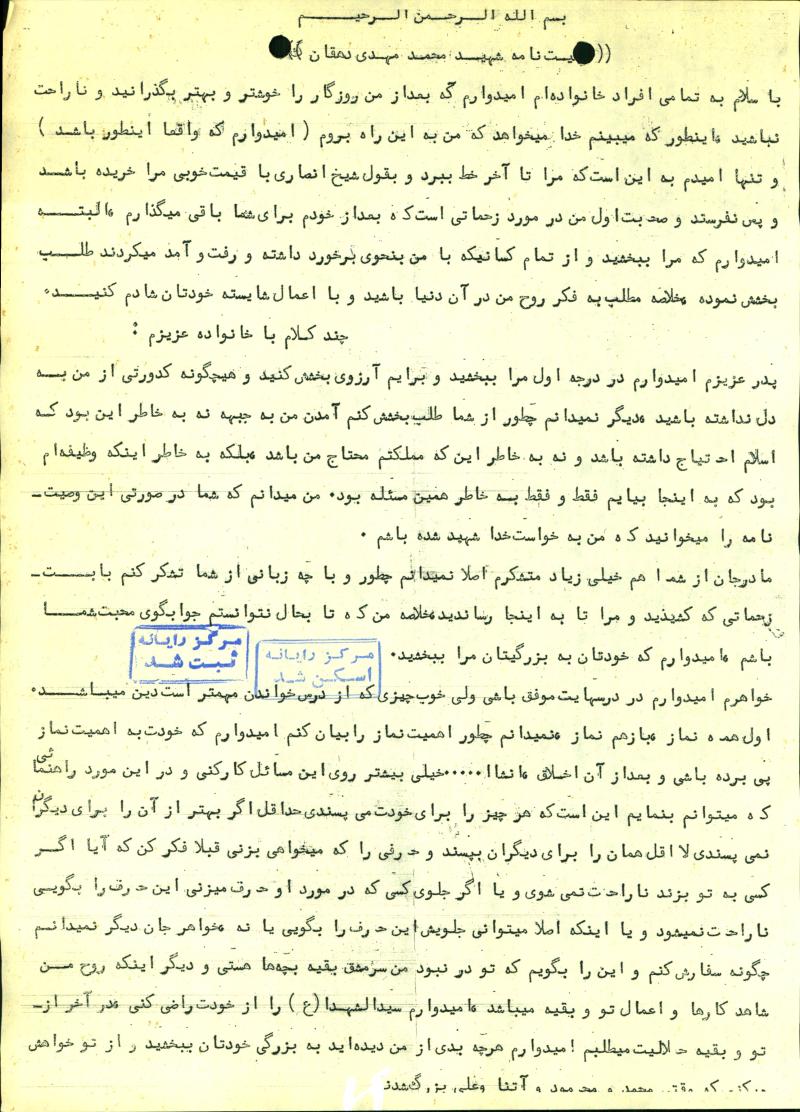 بسم الله الرحمن الرحیم
((وصیت نامه شهید محمد مهدی دهقان))
با سلام به تمامی افراد خانواده‌ام امیدوارم که بعداز من روزگار را خوشتر و بهتر بگذرانید و ناراحت
نباشید ،اینطور که میبینم خدا میخواهد که من به این راه بروم ( امیدوارم که واقعا اینطور باشد )
و تنها امیدم به این است که مرا تا آخر خط ببرد و بقول شیخ انصاری با قیمت خوبی مرا خریده باشد
و پس نفرستد و صحبت اول من در مورد زحماتی است که بعداز خودم برای شما باقی میگذارم ،البته
امیدوارم که مرا ببخشید و از تمام کسانیکه با من بنحوی برخورد داشته و رفت و آمد میکردند طلب
بخشش نموده ،خلاصه مطلب به فکر روح من در آن دنیا باشید و با اعمال شایسته خودتان شادم کنید.
چند کلام با خانواده عزیزم :
پدر عزیزم امیدوارم در درجه اول مرا ببخشید و برایم آرزوی بخشش کنید و هیچگونه کدورتی از من به
دل نداشته باشید ،دیگر نمیدانم چطور از شما طلب بخشش کنم آمدن من به جبهه نه به خاطر این بود که
اسلام احتیاج داشته باشد و نه به خاطر این که مملکتم محتاج من باشد ،بلکه به خاطر اینکه وظیفه‌ام
بود که به اینجا بیایم فقط و فقط به خاطر همین مسئله بود. من میدانم که شما در صورتی این وصیت-
نامه را میخوانید که من به خواست خدا شهید شده باشم .
مادرجان از شما هم خیلی زیاد متشکرم اصلا نمیدانم چطور و با چه زبانی از شما تشکر کنم بابت-
زحماتی که کشیذید و مرا تا به اینجا رساندید ،خلاصه من که تا بحال نتوانستم جوابگوی محبت شما
باشم ،امیدوارم که خودتان به بزرگیتان مرا ببخشید.
مرکز رایانه
ثبت شد
مرکز رایانه
اسکن شد
خواهرم امیدوارم در درسهایت موفق باشی ولی خوب چیزی که از درس خواندن مهمتر است دین میباشد.
اول همه نماز ،بازهم نماز ،نمیدانم چطور اهمیت نماز را بیان کنم امیدوارم که خودت به اهمیت نماز
پی برده باشی و بعداز آن اخلاق ،انشاا.....خیلی بیشتر روی این مسائل کارکنی و در این مورد راهنمائی
که میتوانم بنمایم این است که هر چیز را برای خودت می پسندی حداقل اگر بهتر از آن را برای دیگران
نمی پسندی لااقل همان را برای دیگران بپسند و حرفی را که میخواهی بزنی قبلا فکر کن که آیا اگر
کسی به تو بزند ناراحت نمی شوی و یا اگر جلوی کسی که در مورد او حرف میزنی این حرف را بگویی
ناراحت نمیشود و یا اینکه اصلا میتوانی جلویش این حرف را بگویی یا نه ،خواهر جان دیگر نمیدانم
چگونه سفارش کنم و این را بگویم که تو در نبود من سرمشق بقیه بچه‌ها هستی و دیگر اینکه روح من
شاهد کارها و اعمال تو و بقیه میباشد ،امیدوارم سیدالشهدا(ع) را از خودت راضی کنی ،در آخر از-
تو و بقیه حلالیت میطلبم امیدوارم هرچه بدی از من دیده‌اید به بزرگی خودتان ببخشید و از تو خواهش
میکنم که وقتی محمد و محمود و آتنا وعلی بزرگ شدند